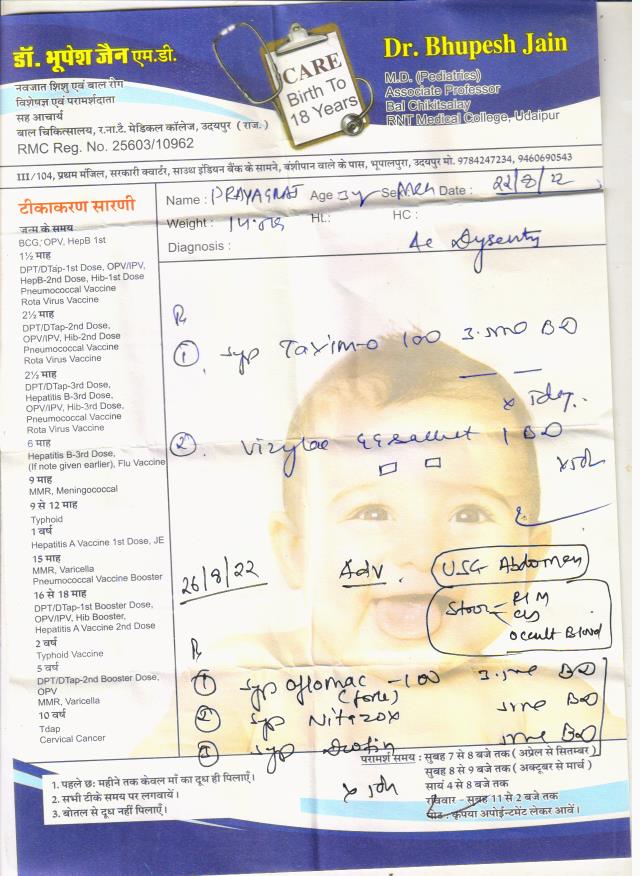 डॉ. भूपेश जैन एम.डी.
नवजात शिशु एवं बाल रोग
विशेषज्ञ एवं परामर्शदाता
सह आचार्य
बाल चिकित्सालय, र.ना.टै. मेडिकल कॉलेज, उदयपुर ( राज.)
RMC Reg. No. 25603/10962
CARE
Birth To
18 Years
Dr. Bhupesh Jain
M.D. (Pediatrics)
Associate Professor
Bal Chikitsalay
RNT Medical College, Udaipur
III/104, प्रथम मंजिल, सरकारी क्वार्टर, साउथ इंडियन बैंक के सामने, बंशीपान वाले के पास, भूपालपुरा, उदयपुर मो. 9784247234, 9460690543
टीकाकरण सारणी
जन्म के समय
BCG, OPV, HepB 1st
1½ माह
DPT/DTap-1st Dose, OPV/IPV,
HepB-2nd Dose, Hib-1st Dose
Pneumococcal Vaccine
Rota Virus Vaccine
2½ माह
DPT/DTap-2nd Dose,
OPV/IPV, Hib-2nd Dose
Pneumococcal Vaccine
Rota Virus Vaccine
2½ माह
DPT/DTap-3rd Dose,
Hepatitis B-3rd Dose,
OPV/IPV, Hib-3rd Dose,
Pneumococcal Vaccine
Rota Virus Vaccine
6 माह
Hepatitis B-3rd Dose,
(If note given earlier), Flu Vaccine
9 माह
MMR, Meningococcal
9 से 12 माह
Typhoid
1 वर्ष
Hepatitis A Vaccine 1st Dose, JE
15 माह
MMR, Varicella
Pneumococcal Vaccine Booster
16 से 18 माह
DPT/DTap-1st Booster Dose,
OPV/IPV, Hib Booster,
Hepatitis A Vaccine 2nd Dose
2 वर्ष
Typhoid Vaccine
5 वर्ष
DPT/DTap-2nd Booster Dose,
OPV
MMR, Varicella
10 वर्ष
Tdap
Cervical Cancer
Name : PRAYAGRAJ Age 3y Sex Date : 22/8/22
Weight : Ht.: HC :
Diagnosis : Ac Dysentry
Rx
1. Syp Taxim-o 100 3.5ml BD
2. BD
26/8/22 Adv. USG Abdomen
Stool - R/M
C/S
Occult Blood
Rx
1 Syp Oflomac -100 3.5ml BD
(forte)
2 Syp Nitazox 5ml BD
3 Syp 5ml BD
1. पहले छ: महीने तक केवल माँ का दूध ही पिलाएँ।
2. सभी टीके समय पर लगवायें।
3. बोतल से दूध नहीं पिलाएँ।
परामर्श समय : सुबह 7 से 8 बजे तक ( अप्रेल से सितम्बर )
सुबह 8 से 9 बजे तक ( अक्टूबर से मार्च )
सायं 4 से 8 बजे तक
रविवार - सुबह 11 से 2 बजे तक
नोट : कृपया अपोईन्टमेंट लेकर आवें।